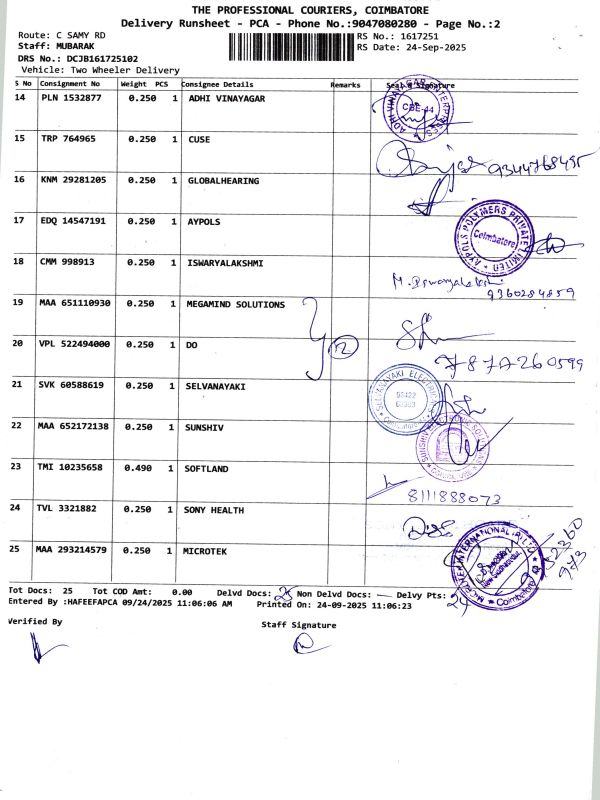 THE PROFESSIONAL COURIERS, COIMBATORE
Delivery Runsheet - PCA - Phone No.:9047080280 - Page No.:2
Route: C SAMY RD RS No.: 1617251
Staff: MUBARAK RS Date: 24-Sep-2025
DRS No.: DCJB161725102
Vehicle: Two Wheeler Delivery
S No Consignment No Weight PCS Consignee Details Remarks Seal & Signature
14 PLN 1532877 0.250 1 ADHI VINAYAGAR CBE-44
15 TRP 764965 0.250 1 CUSE
16 KNM 29281205 0.250 1 GLOBALHEARING
17 EDQ 14547191 0.250 1 AYPOLS AYPOLS POLYMERS PRIVATE LIMITED Coimbatore
18 CMM 998913 0.250 1 ISWARYALAKSHMI
9360284859
19 MAA 651110930 0.250 1 MEGAMIND SOLUTIONS
20 VPL 522494000 0.250 1 DO
21 SVK 60588619 0.250 1 SELVANAYAKI
22 MAA 652172138 0.250 1 SUNSHIV
23 TMI 10235658 0.490 1 SOFTLAND
8111888073
24 TVL 3321882 0.250 1 SONY HEALTH
25 MAA 293214579 0.250 1 MICROTEK
Tot Docs: 25 Tot COD Amt: 0.00 Delvd Docs: 25 Non Delvd Docs: — Delvy Pts: 24
Entered By :HAFEEFAPCA 09/24/2025 11:06:06 AM Printed On: 24-09-2025 11:06:23
Verified By Staff Signature